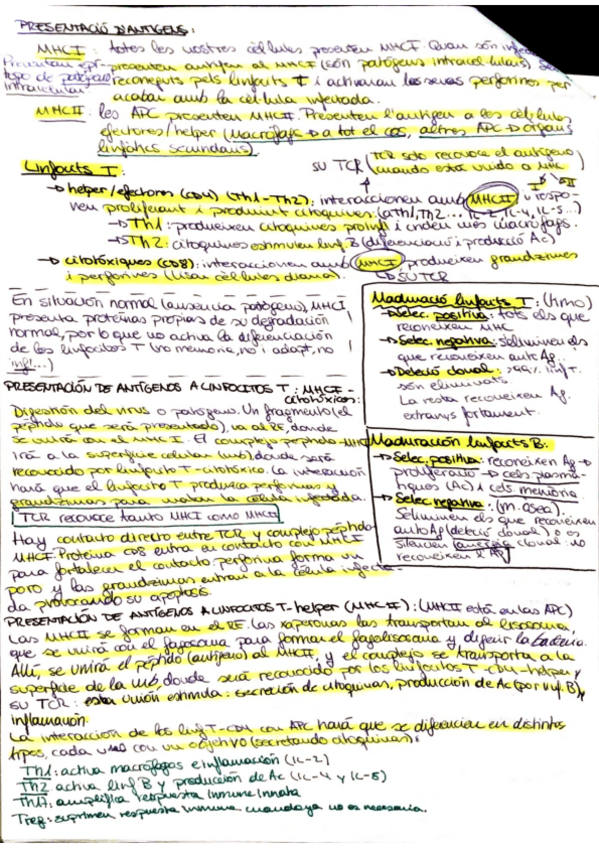 PRESENTACIÓ D'ANTIGENS:
MHCI: totes les nostres cèl·lules presenten MHCI. Quan són infec
Presentan epí- presenten antigen al MHCI (són patògens intracel·lulars) Se
topo de patógeno reconeguts pels linfocits T i activaran les seves perforines per
intracelular. acabar amb la cèl·lula infectada.
MHCII: les APC presenten MHCII. Presenten l'antigen a les cèl·lules
efectores/helper (macròfags → a tot el cos, altres APC → òrgans
linfòtics secundaris).
Linfocits T: su TCR (TCR solo recovoce el antígeno
cuando está unido a MHC
I II
→ helper/efectores (CD4) (Th1-Th2): interaccionen amb MHCII i respo-
nen proliferant i produint citoquines: (aTh1, Th2... IL-4, IL-5...)
→ Th1: produeixen citoquines proinfl i criden més macròfags.
→ Th2: citoquines estimulen linf B (diferenciació i producció Ac)
→ citotòxiques (CD8): interaccionen amb MHCI, produeixen grandzimes
i perforines (lisar cèl·lules diana). → SU TCR
En situación normal (ausencia patógeno), MHCI
presenta proteínas propias de su degradación
normal, por lo que no activa la diferenciación
de los linfocitos T (no memoria, no i adapt, no
infl...)
Maduració linfocits T: (timo)
→ Selec. positiva: tots els que
reconeixen MHC
→ Selec. negativa: s'eliminen els
que reconeixen auto Ag.
→ Deleció clonal: >99% linf T.
són eliminats
La resta reconeixen Ag.
extranys fortament.
PRESENTACIÓN DE ANTÍGENOS A LINFOCITOS T: MHCI-
citotóxicos:
Digestión del virus o patógeno. Un fragmento (el
péptido que será presentado), va al RE, donde
se unirá con el MHC I. El complejo péptido-MHCI
irá a la superficie celular (mb) donde será
reconocido por linfocito T-citotóxico. La interacción
hará que el linfocito T produzca perforinas y
grandzimas para matar la célula infectada.
TCR recovoce tanto MHCI como MHCII
Maduración linfocits B:
→ Selec. positiva: reconeixen Ag →
proliferació → cels plasmà-
tiques (Ac) i cels. memòria.
→ Selec negativa: (m.osea).
S'eliminen els que reconeixen
auto Ag (deleció clonal) o es
silencien (anergia clonal: no
reconeixen + Ag
Hay contacto directo entre TCR y complejo péptido
MHCI. Proteína CD8 entra en contacto con MHCI
para fortalecer el contacto. Perforina forma un
poro y las grandzimas entran a la célula infecta-
da provocando su apoptosis.
PRESENTACIÓN DE ANTÍGENOS A LINFOCITOS T-helper (MHCII): (MHCII está en las APC)
Las MHCII se forman en el RE. Las xaperonas las transportan al lisosoma,
que se unirá con el fagosoma para formar el fagolisosoma y digerir la bacteria.
Allí, se unirá el péptido (antígeno) al MHCII, y el complejo se transporta a la
superficie de la mb, donde será reconocido por los linfocitos T-CD4-helper y
su TCR: esta unión estimula: secreción de citoquinas, producción de Ac (por linf. B),
inflamación.
La interacción de los linf T-CD4 con APC hará que se diferencien en distintos
tipos, cada uno con un objetivo (secretando citoquinas):
Th1: activa macrófagos e inflamación (IL-2)
Th2 activa linf B y producción de Ac (IL-4 y IL-5)
Th17: amplifica respuesta inmune innata
Treg: suprimen respuesta inmune cuando ya no es necesaria.